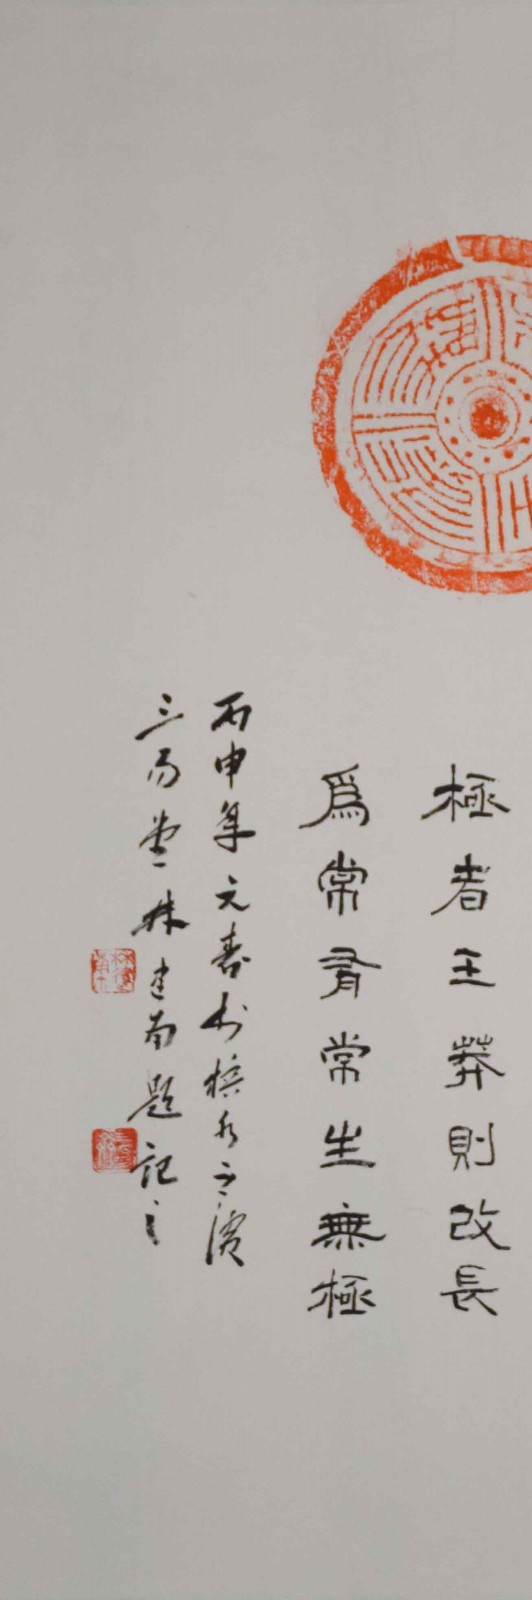 極者王莽則改長
爲常有常生無極
丙申年元春於檳水之濱
三易堂林建南題記之